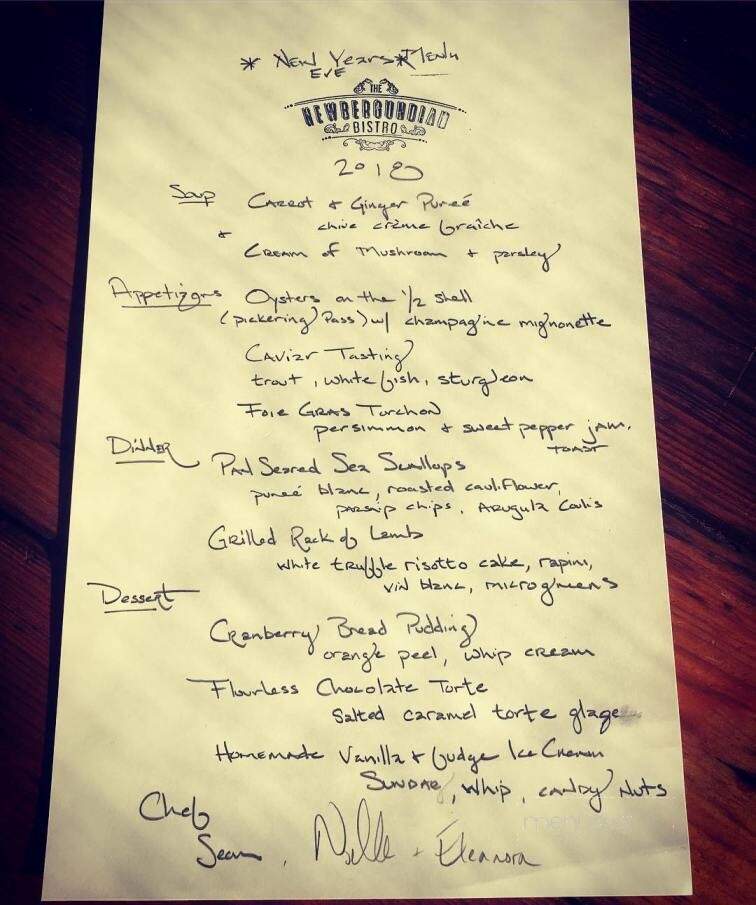 * New Years * Menu
EVE
THE
NEWBERGUNDIAN
BISTRO
2018
Soup Carrot & Ginger Pureé
chive crème fraîche
&
Cream of Mushroom + parsley
Appetizers Oysters on the 1/2 shell
(pickering Pass) w/ champagne mignonette
Caviar Tasting
trout, white fish, sturgeon
Foie Gras Torchon
persimmon & sweet pepper jam,
toast
Dinner Pan Seared Sea Scallops
pureé blanc, roasted cauliflower,
parsnip chips, Arugula Coulis
Grilled Rack of Lamb
white truffle risotto cake, rapini,
vin blanc, microgreens
Dessert
Cranberry Bread Pudding
orange peel, whip cream
Flourless Chocolate Torte
Salted caramel torte glaze
Homemade Vanilla & fudge Ice Cream
Sundae, whip, candy Nuts
Chef
Sean, Noelle + Eleanora